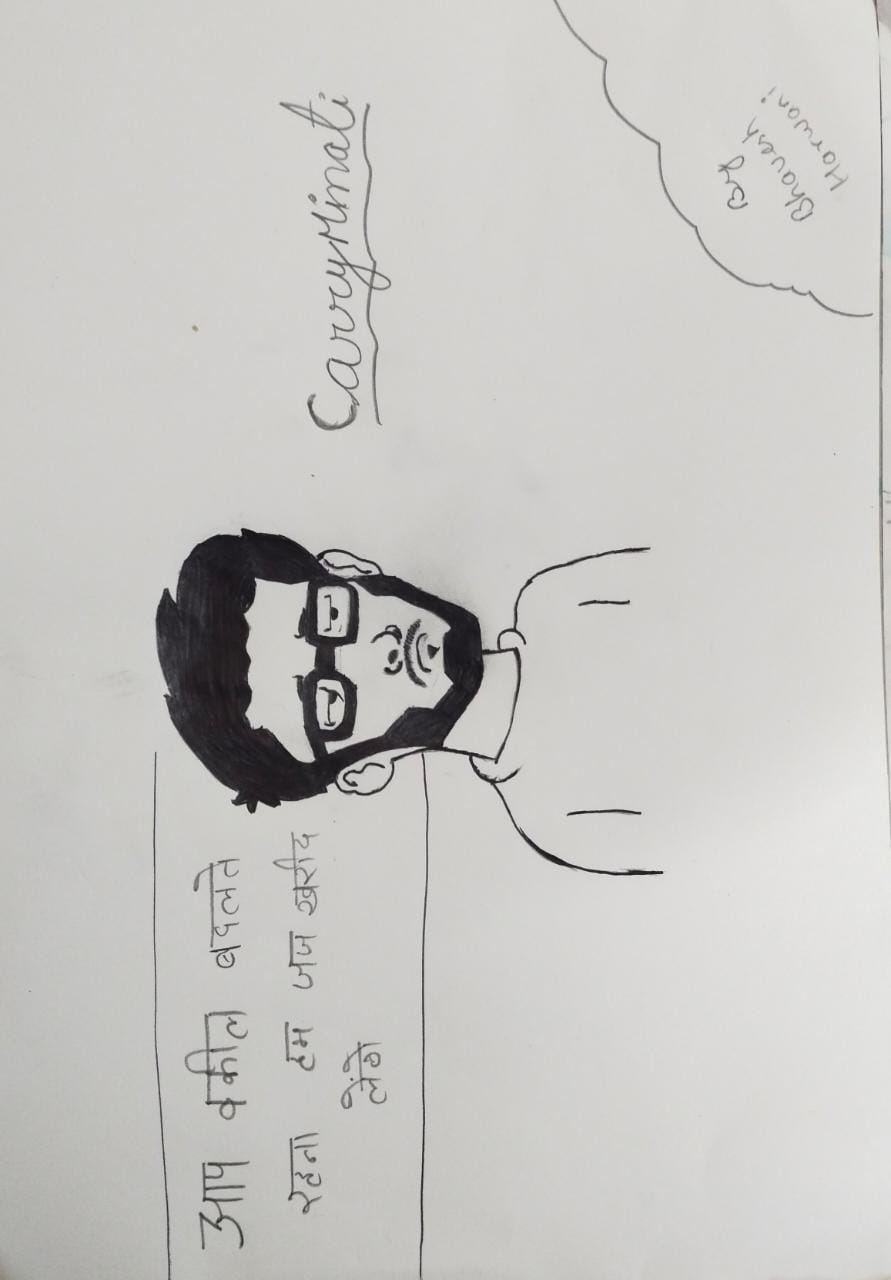 आप वकील बदलते
रहना हम जज खरीद
लेंगे
CarryMinati
By
Bhavesh
Harwani